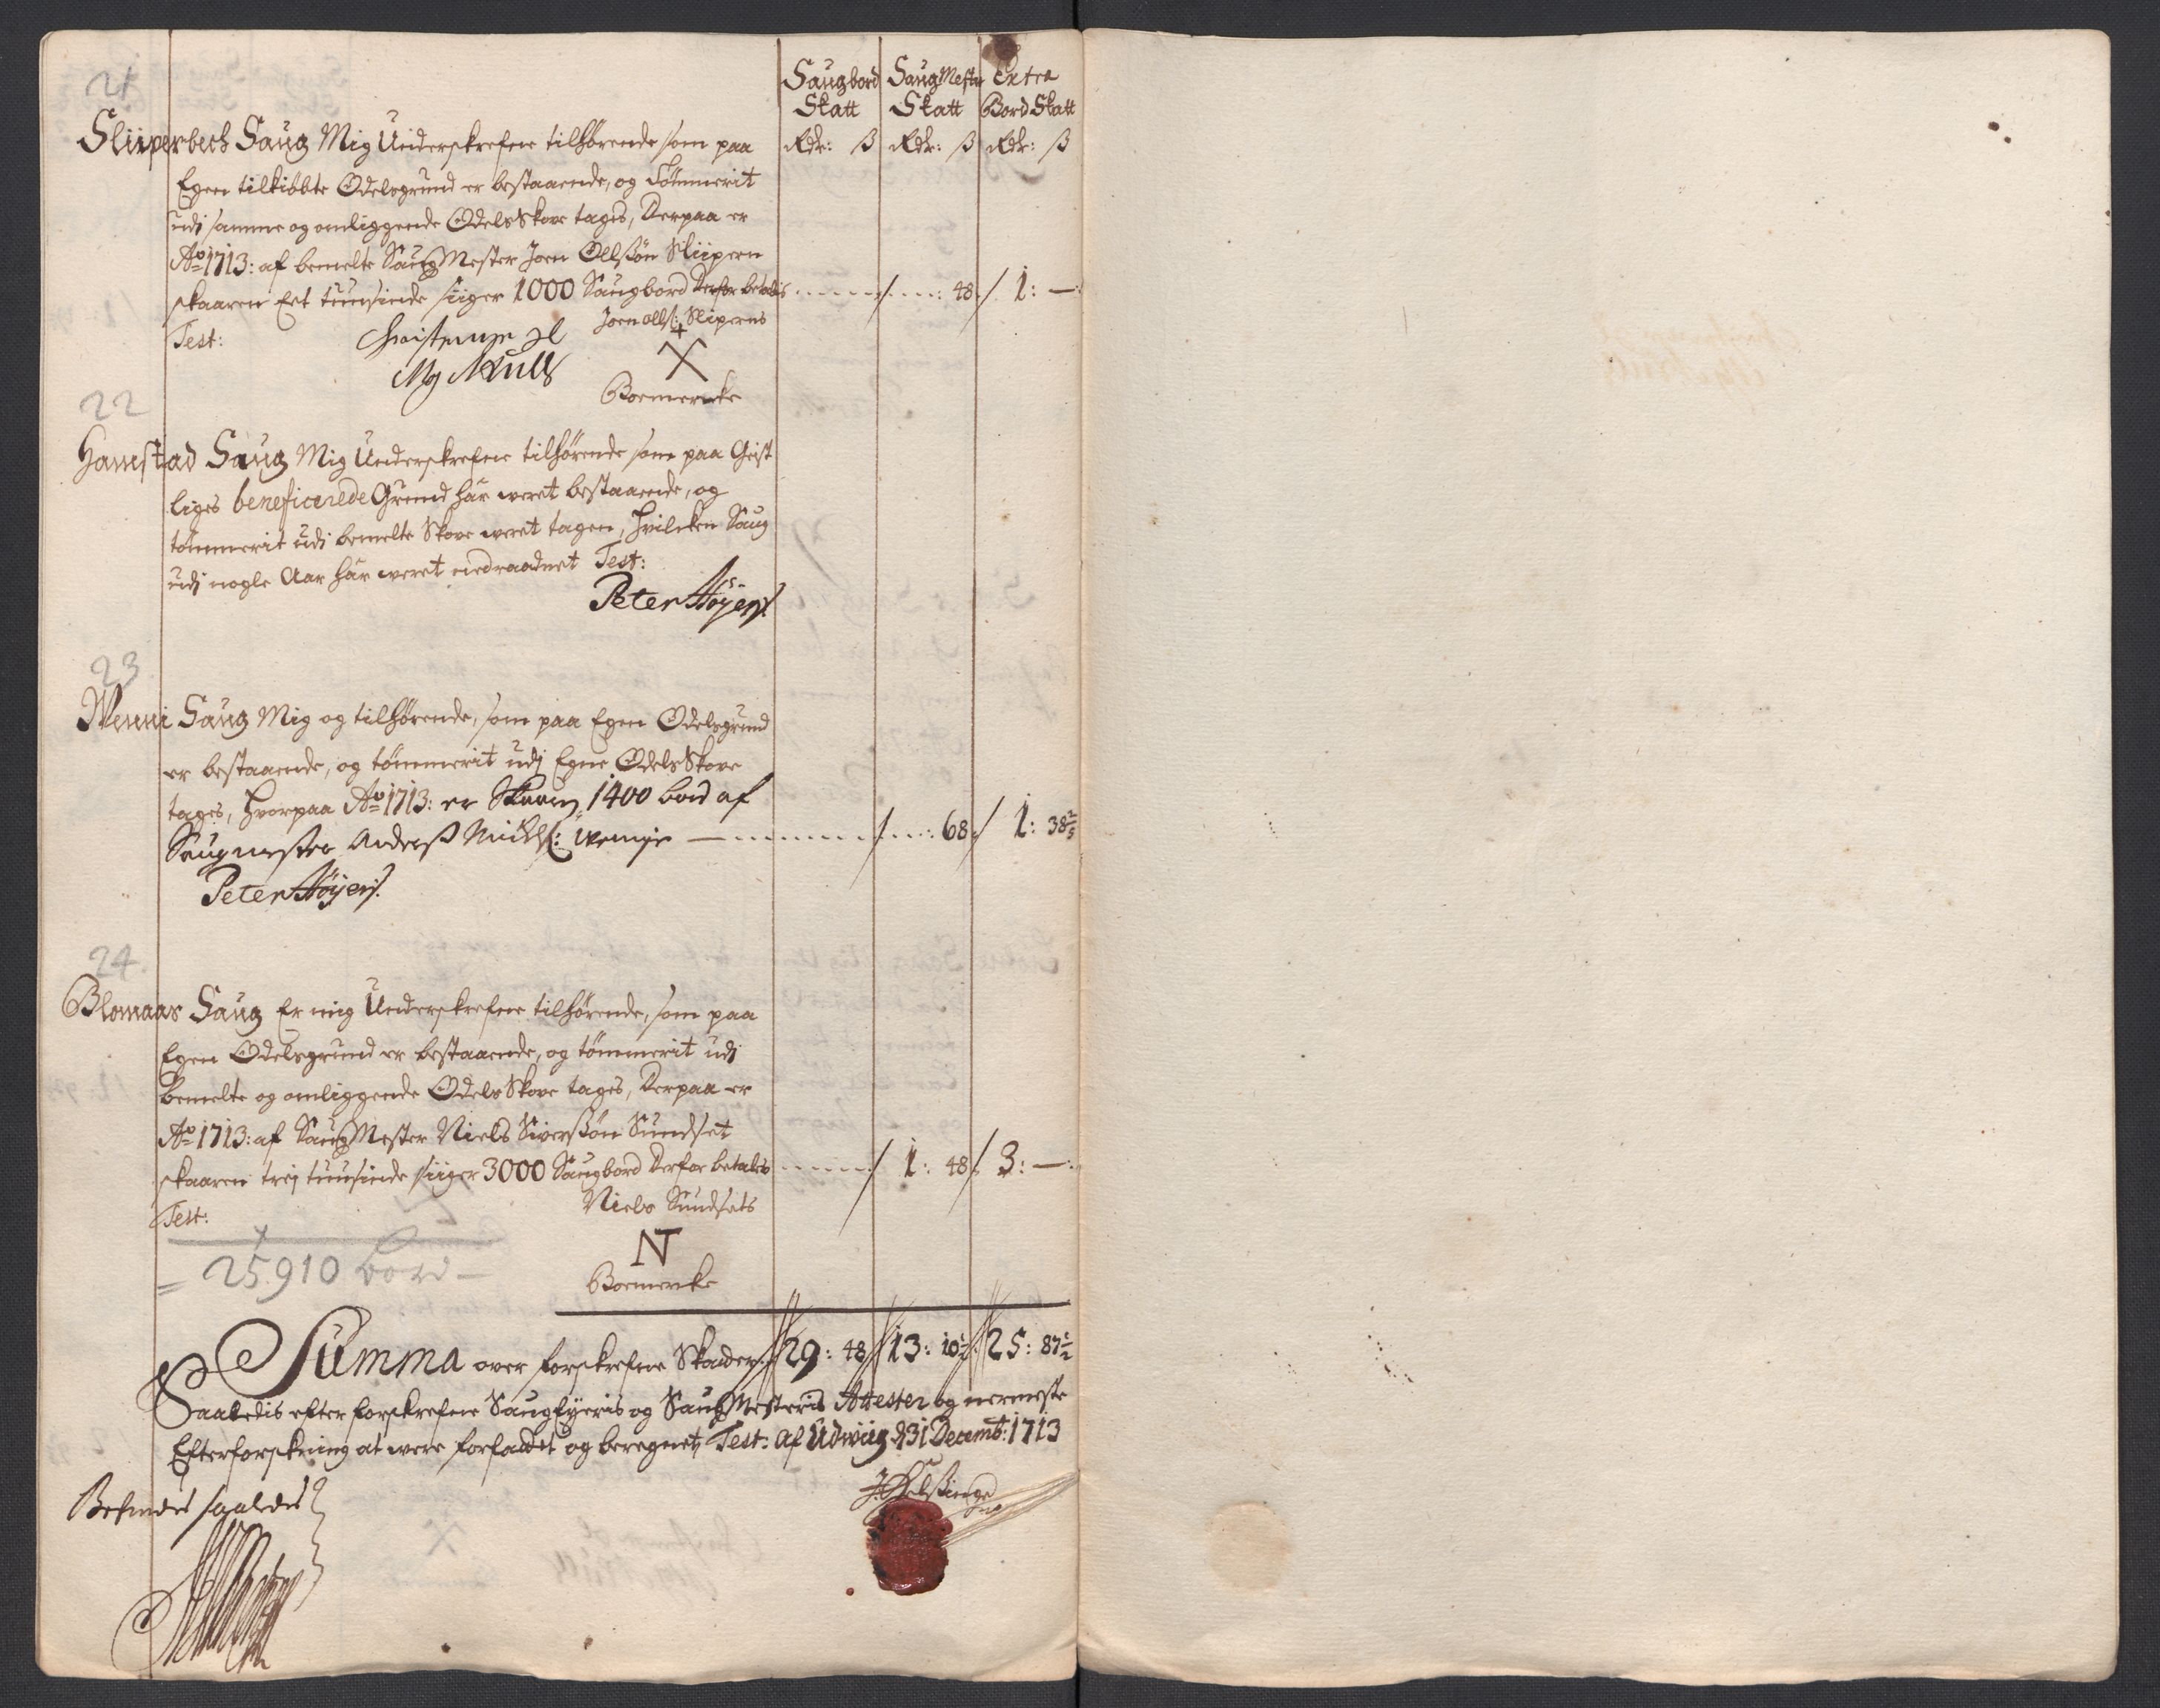 Saugbord Saug Mester Extra
Skatt Skatt Bord Skatt
Rdr: ß Rdr: ß Rdr: ß
21
Sliperbech Saug Mig Underskrefne tilhørende som paa
Egen tilkiøbte Odelsgrund er bestaaende, og Tømmerit
udj samme og omliggende Odels Skove tages, Derpaa er
Ao 1713: af bemelte Saug Mester Joen Ollssøn Sliipern
skaaren Eet tuusinde siiger 1000 Saugbord Derfor betales ...... / ....: 48 / 1: —
Test: Joen Olls: Sliperns
X
Boemercke
22
Hanestad Saug Mig Underskrefne tilhørende som paa Geist
liges beneficerede Grund har weret bestaaende, og
tømmerit udj bemelte Skove weret tagen, Hvilcken Saug
udj nogle Aar har weret nedraadnet Test:
Peter Høyers:
23
Wenni Saug Mig og tilhørende, som paa Egen Odelsgrund
er bestaaende, og tømmerit udj Egne Odels Skove
tages, Hvorpaa Ao 1713: er Skaaren 1400 bord af
Saugmester Anders Mickels: — ...... / ....: 68 / 1: 38 2/5
Peter Høyers:
24.
Blomaas Saug Er mig Underskrefne tilhørende, som paa
Egen Odelsgrund er bestaaende, og tømmerit udj
bemelte og omliggende Odels Skove tages, Derpaa er
Ao 1713: af Saug Mester Niels Siverssøn Sundset
skaaren trej tuusinde siiger 3000 Saugbord Derfor betales ...... / 1: 48 / 3: —:
Test: Niels Sundsets
N
= 25910 bord —
Boemercke
Summa over forskrefne Skatter // 29: 48 // 13: 10 1/2 // 25: 87 1/2
Saaledis efter forskrefne Saug Eyeris og Saug Mesteris Attester og nermeste
Efterforskning at were forfattet og beregnet, Test: af Udwiig d 31 Decemb: 1713
Befindes saaledes